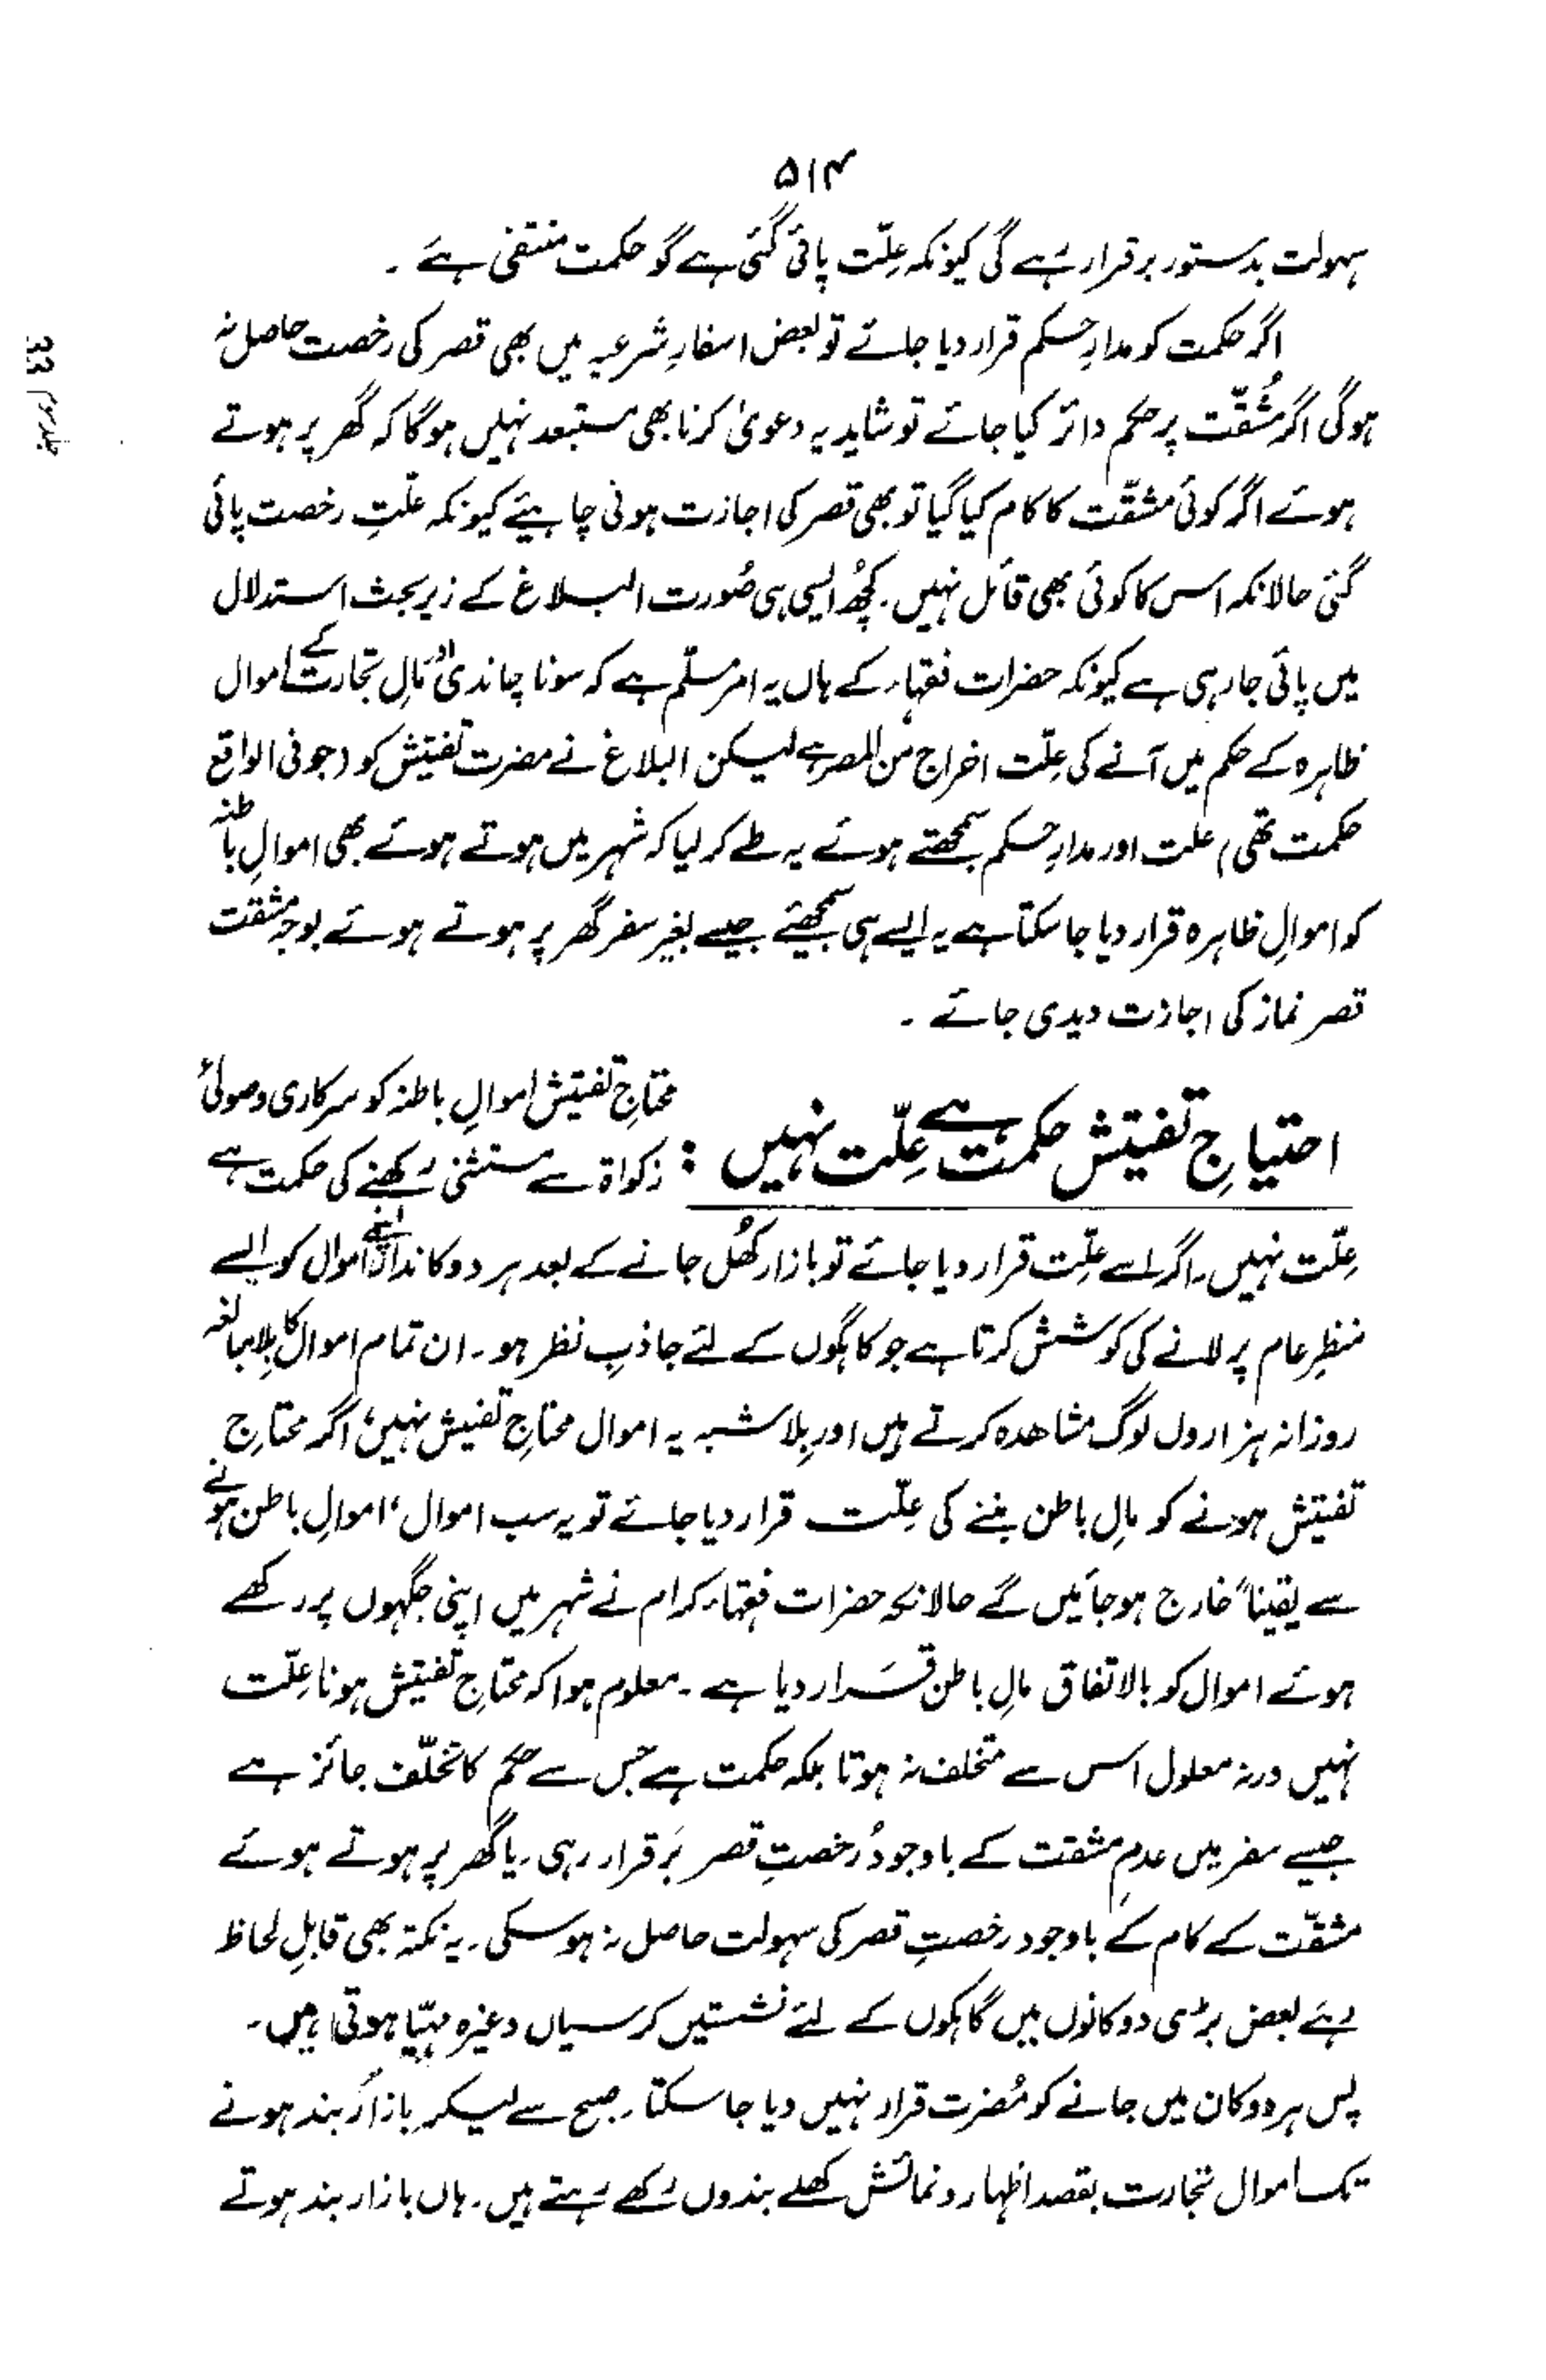 ۵۱۴
سہولت بدستور برقرار رہے گی کیونکہ علّت پائی گئی ہے گو حکمت منتفی ہے ۔
اگر حکمت کو مدارِ حکم قرار دیا جائے تو بعض اسفارِ شرعیہ میں بھی قصر کی رخصت حاصل نہ
ہوگی اگر مُشقّت پر حکم دائر کیا جائے تو شاید یہ دعویٰ کرنا بھی مستبعد نہیں ہوگا کہ گھر پر ہوتے
ہوئے اگر کوئی مشقّت کا کام کیا گیا تو بھی قصر کی اجازت ہونی چاہیئے کیونکہ علّتِ رخصت پائی
گئی حالانکہ اس کا کوئی بھی قائل نہیں ۔ کچھُ ایسی ہی صُورت البلاغ کے زیر بحث استدلال
میں پائی جا رہی ہے کیونکہ حضرات فقہاء کے ہاں یہ امر مسلّم ہے کہ سونا چاندی اور مالِ تجارت کے اموال
ظاہرہ کے حکم میں آنے کی علّت اخراج من المصر ہے لیکن البلاغ نے مضرت تفتیش کو (جو فی الواقع
حکمت تھی) علت اور مدارِ حکم سمجھتے ہوئے یہ طے کر لیا کہ شہر میں ہوتے ہوئے بھی اموالِ باطنہ
کو اموالِ ظاہرہ قرار دیا جا سکتا ہے یہ ایسے ہی سمجھئے جیسے بغیر سفر گھر پر ہوتے ہوئے بوجہ مشقت
قصر نماز کی اجازت دیدی جائے ۔
احتیاجِ تفتیش حکمت ہے علّت نہیں : محتاجِ تفتیش اموالِ باطنہ کو سرکاری وصولیٔ
زکواۃ سے مستثنیٰ رکھنے کی حکمت ہے
علّت نہیں ۔ اگر اسے علّت قرار دیا جائے تو بازار کھُل جانے کے بعد ہر دوکاندار اپنے اموال کو ایسے
منظرِ عام پر لانے کی کوشش کرتا ہے جو گاہگوں کے لئے جاذبِ نظر ہو ۔ ان تمام اموال کا بلا مبالغہ
روزانہ ہزاروں لوگ مشاھدہ کرتے ہیں اور بلا شبہ یہ اموال محتاجِ تفتیش نہیں، اگر محتاجِ
تفتیش ہونے کو مالِ باطن بننے کی علّت قرار دیا جائے تو یہ سب اموال، اموالِ باطن ہونے
سے یقیناً خارج ہو جائیں گے حالانکہ حضرات فقہاء کرام نے شہر میں اپنی جگہوں پر رکھے
ہوئے اموال کو بالاتفاق مالِ باطن قرار دیا ہے ۔ معلوم ہوا کہ محتاجِ تفتیش ہونا علّت
نہیں ورنہ معلول اس سے متخلف نہ ہوتا بلکہ حکمت ہے جس سے حکم کا تخلّف جائز ہے
جیسے سفر میں عدمِ مشقت کے باوجود رُخصتِ قصر بَرقرار رہی ۔ یا گھر پر ہوتے ہوئے
مشقّت کے کام کے باوجود رخصتِ قصر کی سہولت حاصل نہ ہو سکی ۔ یہ نکتہ بھی قابلِ لحاظ
ہے بعض بڑی دوکانوں میں گاہکوں کے لئے نشستیں کرسیاں وغیرہ مہیّا ہوتی ہیں ۔
پس ہر دوکان میں جانے کو مُضرت قرار نہیں دیا جا سکتا ۔ صبح سے لیکر بازار بند ہونے
تک اموال تجارت بقصد اظہار و نمائش کھلے بندوں رکھے رہتے ہیں ۔ ہاں بازار بند ہوتے